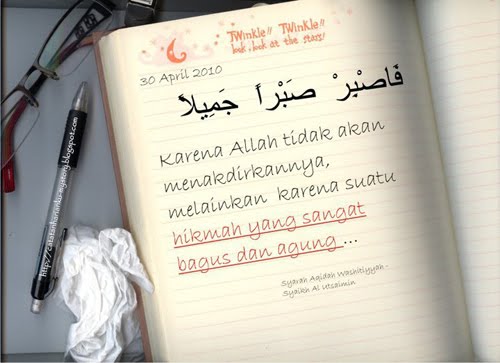 TWinkle!! TWinkle!!
look, look at the stars!
30 April 2010
فَاصْبِرْ صَبْرًا جَمِيلاً
Karena Allah tidak akan
menakdirkannya,
melainkan karena suatu
hikmah yang sangat
bagus dan agung ...
Syarah Aqidah Washitiyyah -
Syaikh Al Utsaimin